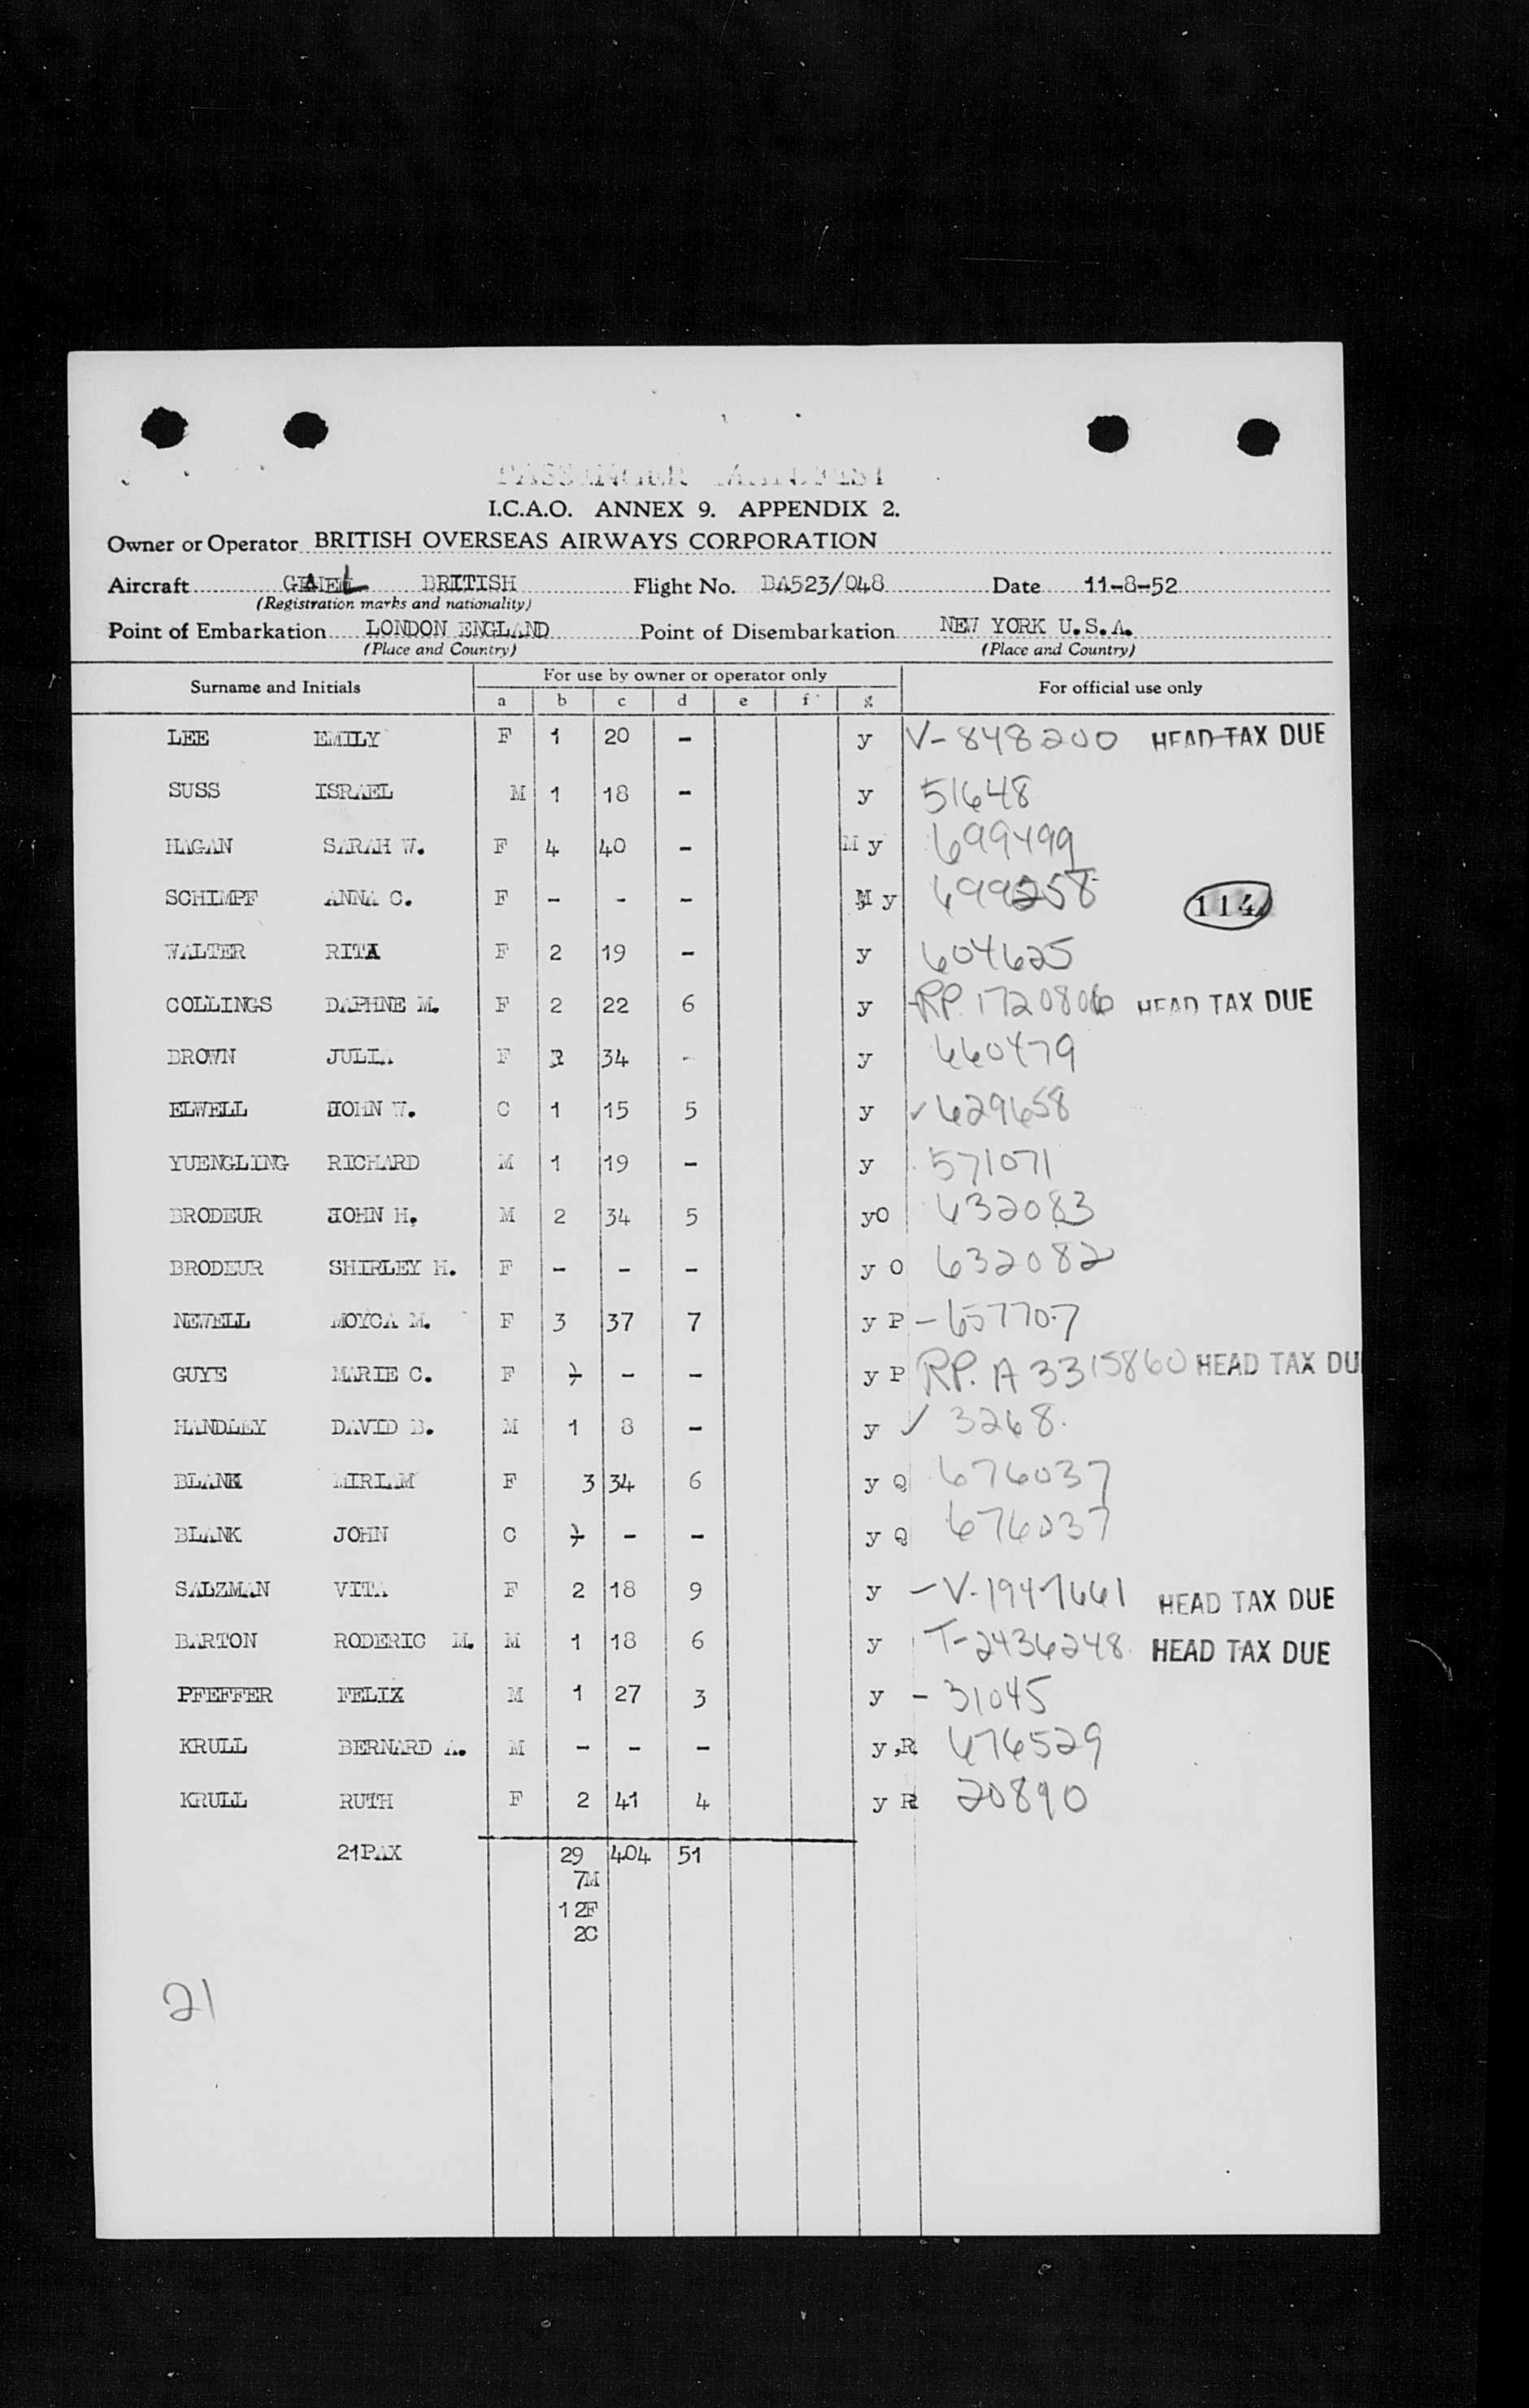 PASSENGER MANIFEST
I.C.A.O. ANNEX 9. APPENDIX 2.
Owner or Operator BRITISH OVERSEAS AIRWAYS CORPORATION
Aircraft BRITISH Flight No. BA523/048 Date 11-8-52
(Registration marks and nationality)
Point of Embarkation LONDON ENGLAND Point of Disembarkation NEW YORK U.S.A.
(Place and Country) (Place and Country)
Surname and Initials For use by owner or operator only For official use only
a b c d e f g
LEE EMILY F 1 20 - y V-848200 HEAD TAX DUE
SUSS ISRAEL M 1 18 - y 51648
HAGAN SARAH W. F 4 40 - M y 699499
SCHIMPF ANNA C. F - - - M y 699258 114
WALTER RITA F 2 19 - y 604625
COLLINGS DAPHNE M. F 2 22 6 y RP. 1720806 HEAD TAX DUE
BROWN JULIA F 34 - y 660479
ELWELL JOHN W. C 1 15 5 y ✓ 629658
YUENGLING RICHARD M 1 19 - y 571071
BRODEUR JOHN H. M 2 34 5 yO 632083
BRODEUR SHIRLEY H. F - - - y O 632082
NEWELL MOYCA M. F 3 37 7 y P - 657707
GUYE MARIE C. F - - y P RP. A 3315860 HEAD TAX DU
HANDLEY DAVID B. M 1 8 - y ✓ 3268.
BLANK MIRIAM F 3 34 6 y Q 676037
BLANK JOHN C - - y Q 676037
SALZMAN VITA F 2 18 9 y - V-1947661 HEAD TAX DUE
BARTON RODERIC M. M 1 18 6 y T-2436248 HEAD TAX DUE
PFEFFER FELIX M 1 27 3 y - 31045
KRULL BERNARD A. M - - - y ,R 676529
KRULL RUTH F 2 41 4 y R 20890
21PAX 29 404 51
7M
12F
2C
21